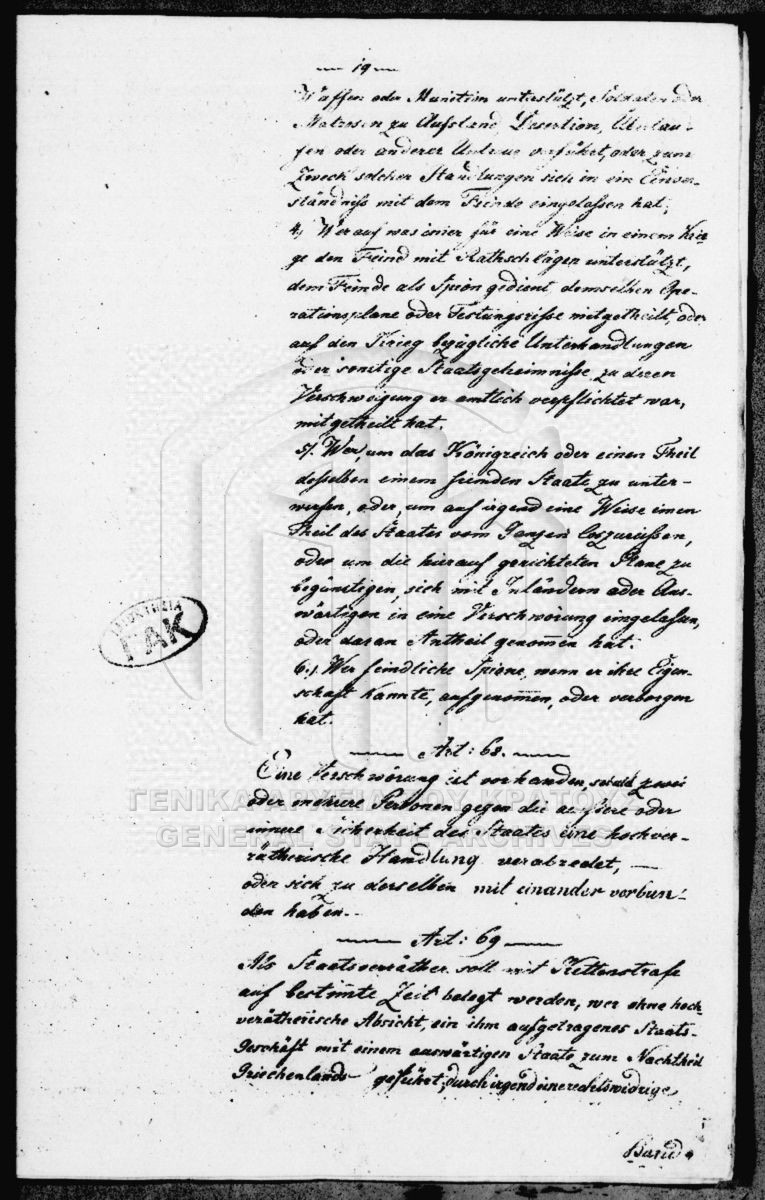 — 19 —
Waffen oder Munition unterstützt, Soldaten oder
Matrosen zu Aufstand, Desertion, Überlau-
fen oder anderer Untreue verführt, oder zum
Zweck solcher Handlungen sich in ein Einver-
ständniß mit dem Feinde eingelaßen hat;
4.) Wer auf was immer für eine Weise in einem Krie
ge den Feind mit Rathschlägen unterstützt,
dem Feinde als Spion gedient demselben Ope-
rationsplane oder Festungsriße mitgetheilt, oder
auf den Krieg bezügliche Unterhandlungen
oder sonstige Staatsgeheimniße zu deren
Verschweigung er amtlich verpflichtet war,
mitgetheilt hat.
5.) Wer, um das Königreich oder einen Theil
deßelben einem fremden Staate zu unter-
werfen, oder, um auf irgend eine Weise einen
Theil des Staates vom Ganzen loszureißen,
oder um die hierauf gerichteten Plane zu
begünstigen, sich mit Inländern oder Aus-
wärtigen in eine Verschwörung eingelaßen,
oder daran Antheil genommen hat.
6.) Wer feindliche Spione, wenn er ihre Eigen-
schaft kannte, aufgenommen, oder verborgen
hat.
— Art: 68. —
Eine Verschwörung ist vorhanden, sobald zwei
oder mehrere Personen gegen die aeußere oder
innere Sicherheit des Staates eine hochver-
rätherische Handlung verabredet, —
oder sich zu derselben mit einander verbun-
den haben. -
— Art: 69 —
Als Staatsverräther soll mit Kettenstrafe
auf bestimmte Zeit belegt werden, wer ohne hoch
verätherische Absicht, ein ihm aufgetragenes Staats-
Geschäft mit einem auswärtigen Staate zum Nachtheil
Griechenlands geführt, durch irgend eine rechtswidrige
ΓΑΚ
ΓΕΝΙΚΑ ΑΡΧΕΙΑ ΤΟΥ ΚΡΑΤΟΥΣ
GENERAL STATE ARCHIVES